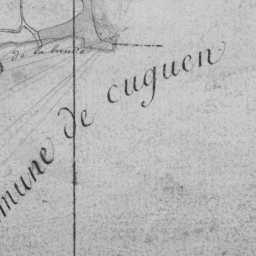 de la bande
mune de cuguen